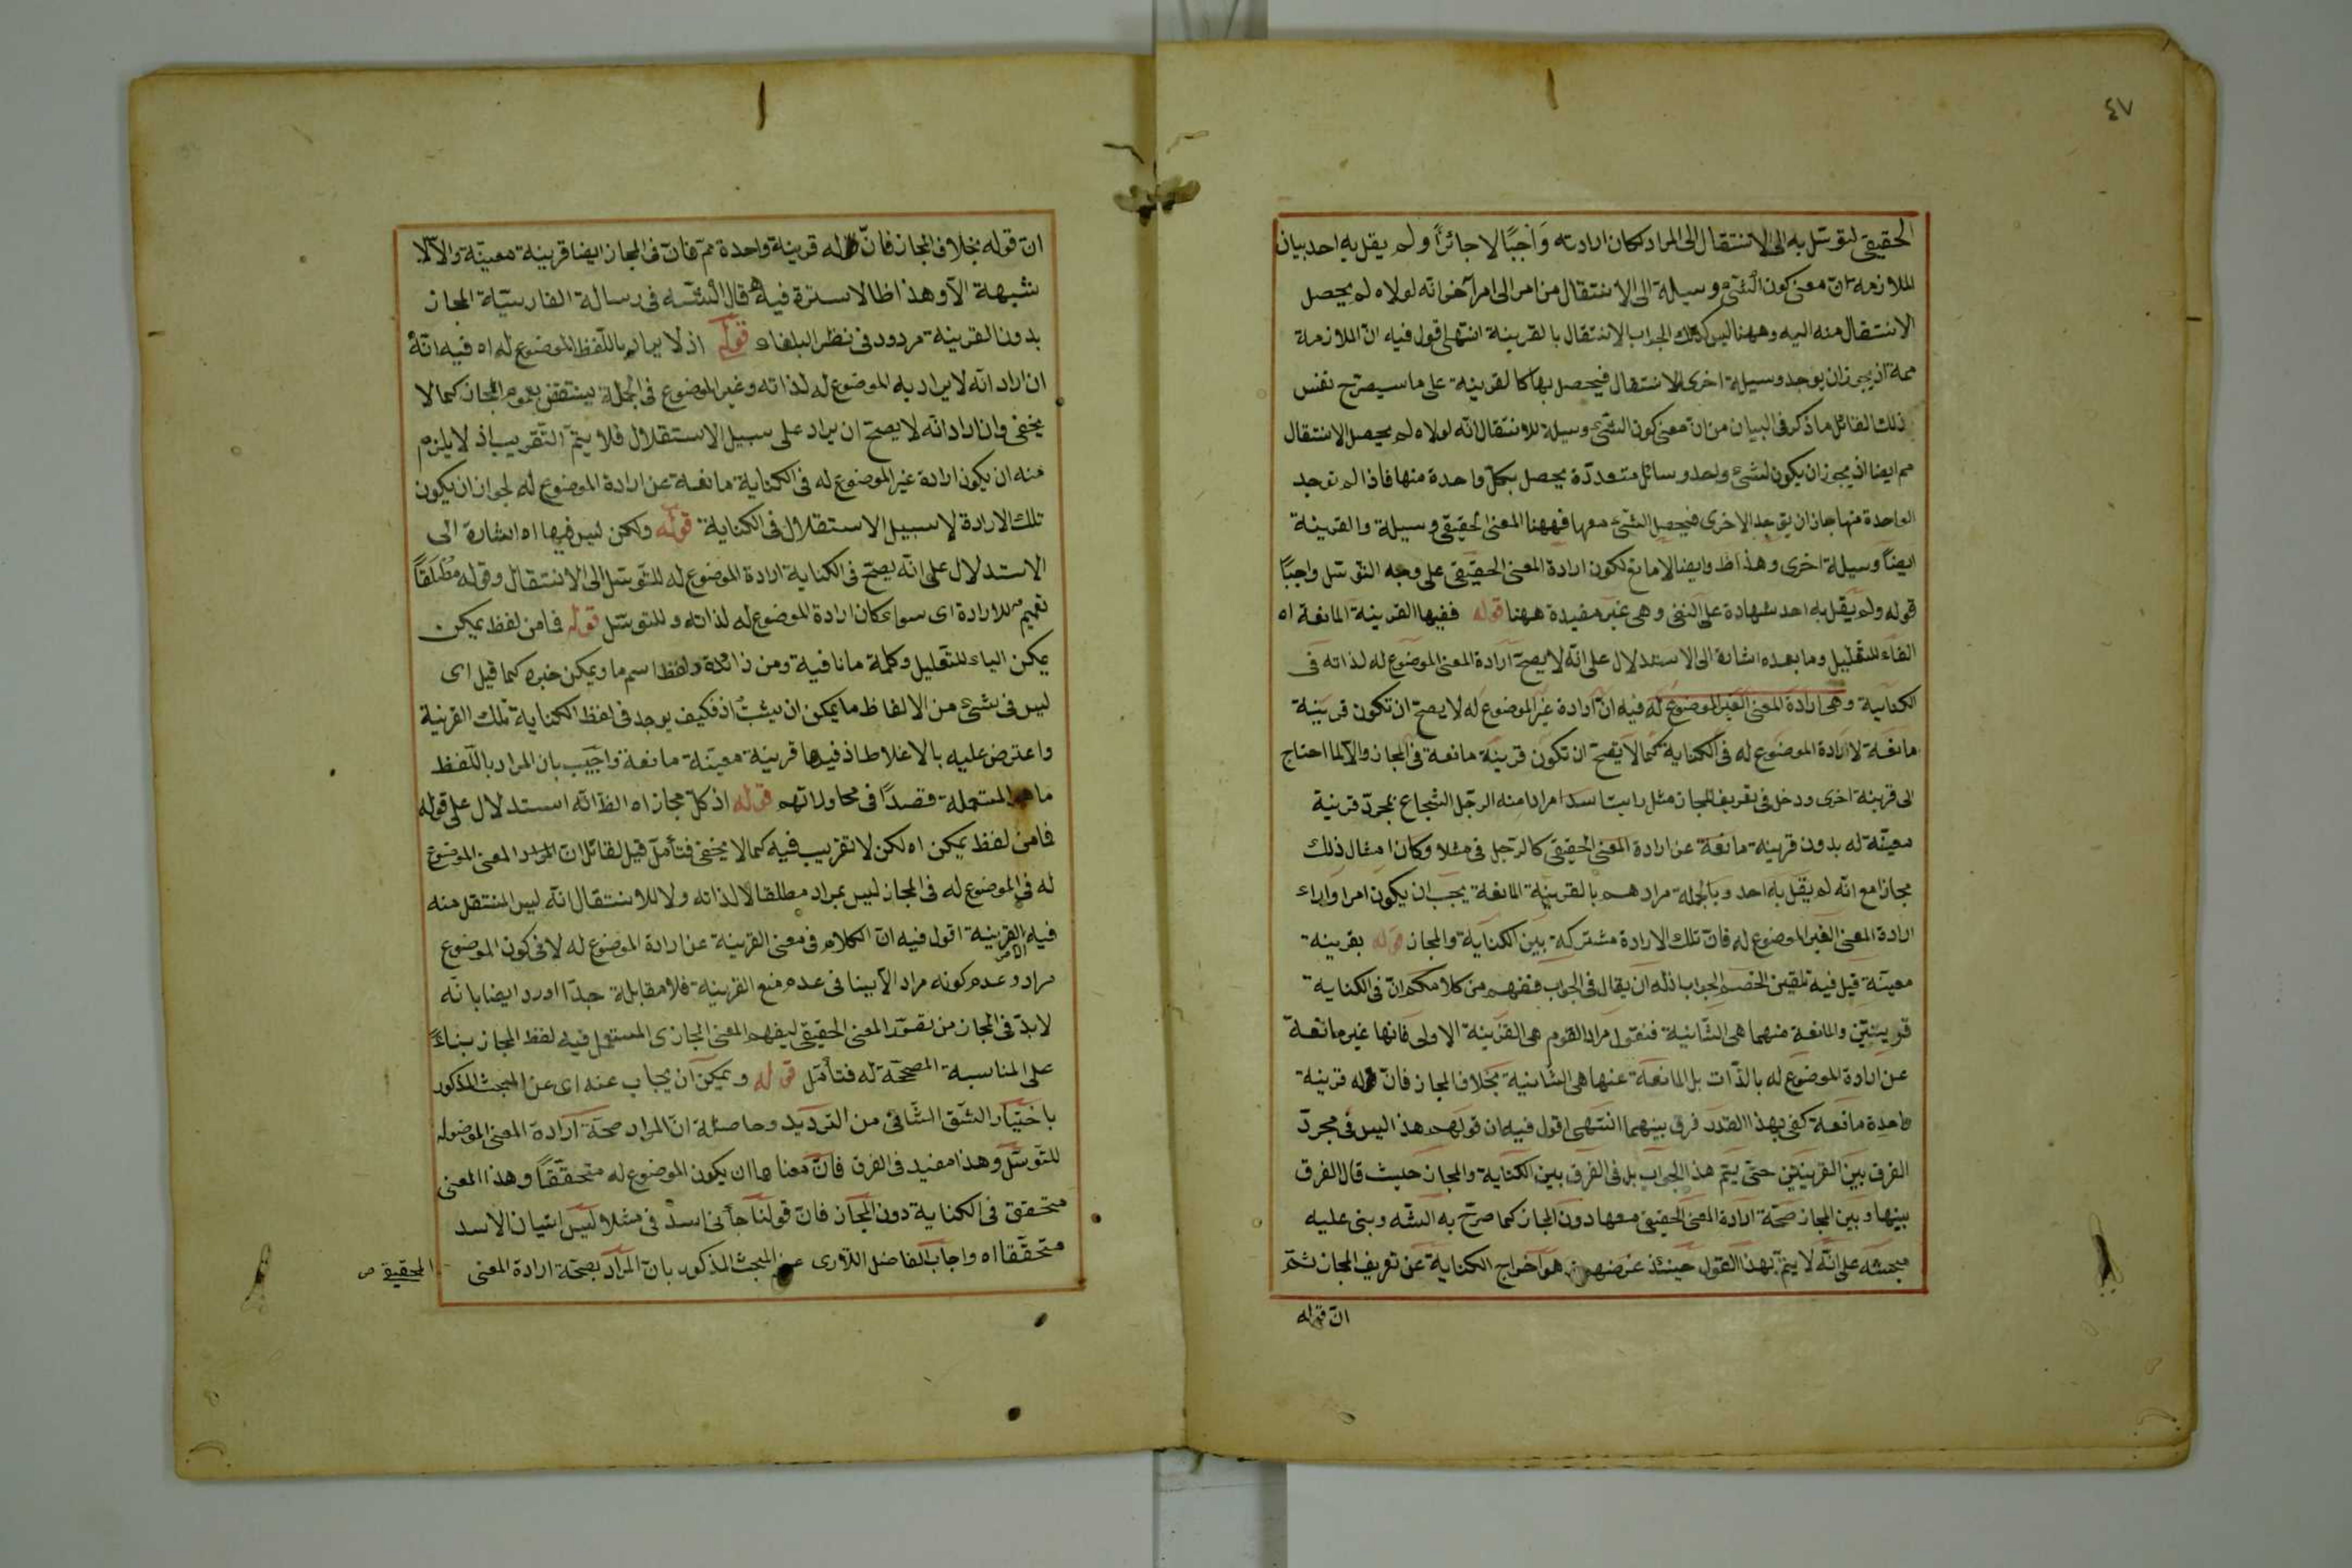 ٤٧
الحقيقى لتوسّل به الى الانتقال الى المراد لكان ارادته وَاجبًا لا جائزًا ولم يقل به احد بيان
الملازمة انّ معنى كون الشئ وسيلة الى الانتقال من امر الى امر آخر انه لولاه لم يحصل
الانتقال منه اليه وههنا ليس كذلك الجواب الانتقال بالقرينة انتهى اقول فيه انّ الملازمة
ممة اذ يجوز ان يوجد وسيلة اخرى للانتقال فيحصل بها كالقرينة على ما سيصرّح نفس
ذلك القائل ما ذكر فى البيان من انّ معنى كون الشئ وسيلة للانتقال انّه لولاه لم يحصل الانتقال
مم ايضا اذ يجوز ان يكون لشئ واحد وسائل متعددّة يحصل بكلّ واحدة منها فاذا لم توجد
الواحدة منها جاز ان يوجد الاخرى فيحصل الشئ معها فههنا المعنى الحقيقى وسيلة والقرينة
ايضاً وسيلة اخرى وهذا ظ وايضا لا مانع لكون ارادة المعنى الحقيقى على وجه التوسّل واجبًا
قوله ولم يقل به احد شهادة على النفى وهى غير مفيدة ههنا قوله ففيها القرينة المانعة اه
الفاء للتعليل وما بعده اشارة الى الاستدلال على انّه لا يصحّ ارادة المعنى الموضوع له لذاته فى
الكناية وهى ارادة المعنى الغير الموضوع له فيه انّ ارادة غير الموضوع له لا يصحّ ان تكون قرينة
مانعة لارادة الموضوع له فى الكناية كما لا يصحّ ان تكون قرينة مانعة فى المجاز والّا لما احتاج
الى قرينة اخرى ودخل فى تعريف المجاز مثل رايت اسدا مرادا منه الرجل الشجاع بمجرّد قرينة
معيّنة له بدون قرينة مانعة عن ارادة المعنى الحقيقى كالرّجل فى مثلا وكان امثال ذلك
مجازا مع انّه لم يقل به احد وبالجملة مرادهم بالقرينة المانعة يجب ان يكون امرا وراء
ارادة المعنى الغير الموضوع له فانّ تلك الارادة مشتركة بين الكناية والمجاز قوله بقرينة
معيّنة قيل فيه تلقين الخصم الجواب اذ له ان يقال فى الجواب ففهم من كلامكم انّ فى الكناية
قرينتين والمانعة منهما هى الثّانية فنقول مراد القوم هى القرينة الاولى فانها غير مانعة
عن ارادة الموضوع له بالذّات بل المانعة عنها هى الثانية بخلاف المجاز فانّ له قرينة
واحدة مانعة كفى بهذا القدر فرق بينهما انتهى اقول فيه ان قولهم هذا ليس فى مجرّد
الفرق بين القرينتين حتى يتم هذا الجواب بل فى الفرق بين الكناية والمجاز حيث قال الفرق
بينها وبين المجاز صحّة ارادة المعنى الحقيقى معها دون المجاز كما صرّح به الشّه وبنى عليه
مبحثه على انّه لا يتمّ بهذا القول حينئذ غرضهم هو اخراج الكناية عن تعريف المجاز ثمّ
انّ قوله
انّ قوله بخلاف المجاز فانّ له قرينة واحدة ممّ فانّ فى المجاز ايضا قرينة معيّنة والّا لا
شبهة الّا وهذا ظا لا سترة فيه قال الشّه فى رسالة الفارسيّة المجاز
بدون القرينة مردود فى نظر البلغاء قوله اذ لا يراد باللّفظ الموضوع له اه فيه انّه
ان اراد انّه لا يراد به الموضوع له لذاته وغير الموضوع فى الجملة ينتقض بعموم المجاز كما لا
يخفى وان اراد انّه لا يصحّ ان يراد على سبيل الاستقلال فلا يتمّ التّقريب اذ لا يلزم
منه ان يكون ارادة غير الموضوع له فى الكناية مانعة عن ارادة الموضوع له لجواز ان يكون
تلك الارادة لا سبيل الاستقلال فى الكناية قوله ولكن ليس فيها اه اشارة الى
الاستدلال على انّه يصحّ فى الكناية ارادة الموضوع له للتّوسّل الى الانتقال وقوله مُطْلَقاً
تعميم للارادة اى سواء كان ارادة الموضوع له لذاته وللتوسّل قوله فما من لفظ يمكن
يمكن الياء للتّعليل وكلمة ما نافية ومن زائدة ولفظ اسم ما ويمكن خبره كما قيل اى
ليس فى شئ من الالفاظ ما يمكن ان يثبتُ اذ فكيف يوجد فى لفظ الكناية تلك القرينة
واعترض عليه بالاغلاط اذ فيها قرينة معيّنة مانعة واجيب بان المراد باللّفظ
ما هو المستعملة قصدًا فى محاوراتهم قوله اذ كلّ مجاز اه الظ انّه استدلال على قوله
فما من لفظ يمكن اه لكن لا تقريب فيه كما لا يخفى فتأمّل قيل لقائل ان المراد المعنى الموضوع
له فى الموضوع له فى المجاز ليس بمراد مطلقا لا لذاته ولا للانتقال انّه ليس المنتقل منه
فيه القرينة اقول فيه انّ الكلام فى معنى القرينة عن ارادة الموضوع له لا فى كون الموضوع
مراد وعدم كونه مرادا لا بينا فى عدم منع القرينة فلا مقابلة جدّا اورد ايضا بانّه
لا بدّ فى المجاز من تصوّر المعنى الحقيقى ليفهم المعنى المجازى المستعمل فيه لفظ المجاز بناءً
على المناسبة المصححّة له فتأمّل قوله ويمكن ان يجاب عنه اى عن المبحث المذكور
باختيار الشّق الثّانى من التّرديد وحاصله انّ المراد صحّة ارادة المعنى الموضوله
للتّوسّل وهذا مفيد فى الفرق فانّ معناها ان يكون الموضوع له متحقّقاً وهذا المعنى
متحقق فى الكناية دون المجاز فانّ قولنا جاءنى اسد فى مثلا ليس اتيان الاسد
متحقّقا اه واجاب الفاضل اللّارى عن المبحث المذكور بانّ المراد بصحّة ارادة المعنى
الحقيقى ص